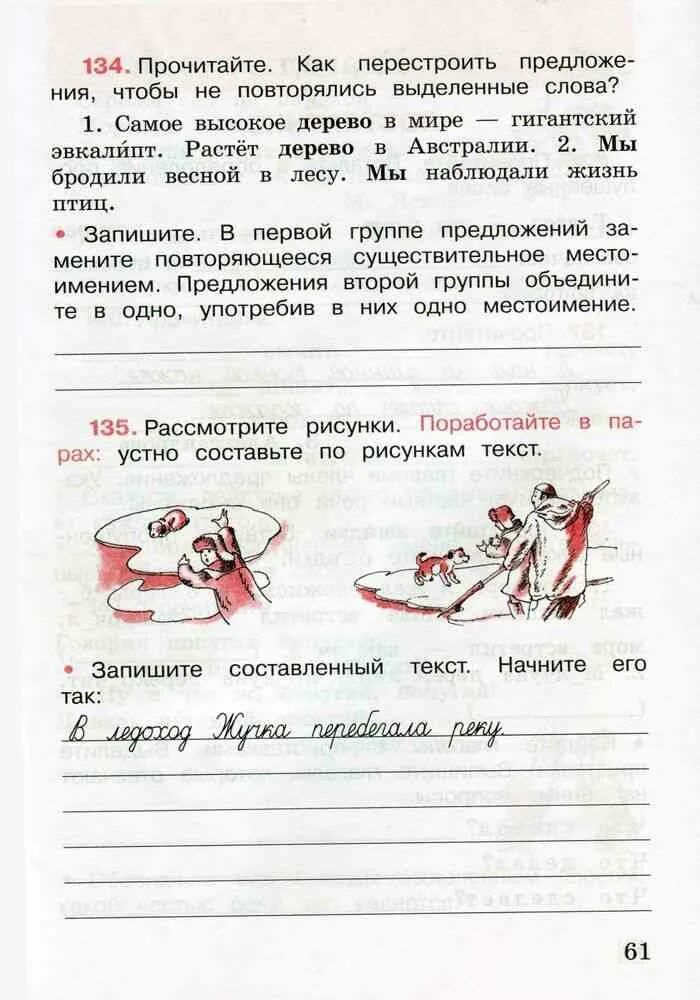 134. Прочитайте. Как перестроить предложе-
ния, чтобы не повторялись выделенные слова?
1. Самое высокое дерево в мире — гигантский
эвкали́пт. Растёт дерево в Австралии. 2. Мы
бродили весной в лесу. Мы наблюдали жизнь
птиц.
• Запишите. В первой группе предложений за-
мените повторяющееся существительное место-
имением. Предложения второй группы объедини-
те в одно, употребив в них одно местоимение.
135. Рассмотрите рисунки. Поработайте в па-
рах: устно составьте по рисункам текст.
• Запишите составленный текст. Начните его
так:
В ледоход Жучка перебегала реку.
61